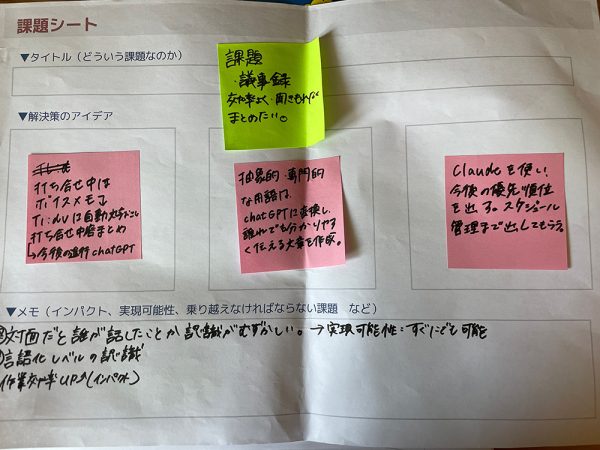 課題シート
▼タイトル（どういう課題なのか）
課題
・議事録
効率よく・聞きもれなく
まとめたい。
▼解決策のアイデア
打ち合せ中は
ボイスメモ↓
は自動文字おこし
打ち合せ中座まとめ
↳今後の進行chatGPT
抽象的・専門的
な用語は、
chatGPTに変換し、
誰れでも分かりやす
く伝える文章を作成。
Claudeを使い、
今後の優先順位
を出す。スケジュール
管理まで出してもらう。
▼メモ（インパクト、実現可能性、乗り越えなければならない課題　など）
対面だと誰が話したことか認識がむずかしい。→実現可能性：すぐにでも可能
言語化レベルの認識
作業効率UP↗(インパクト)